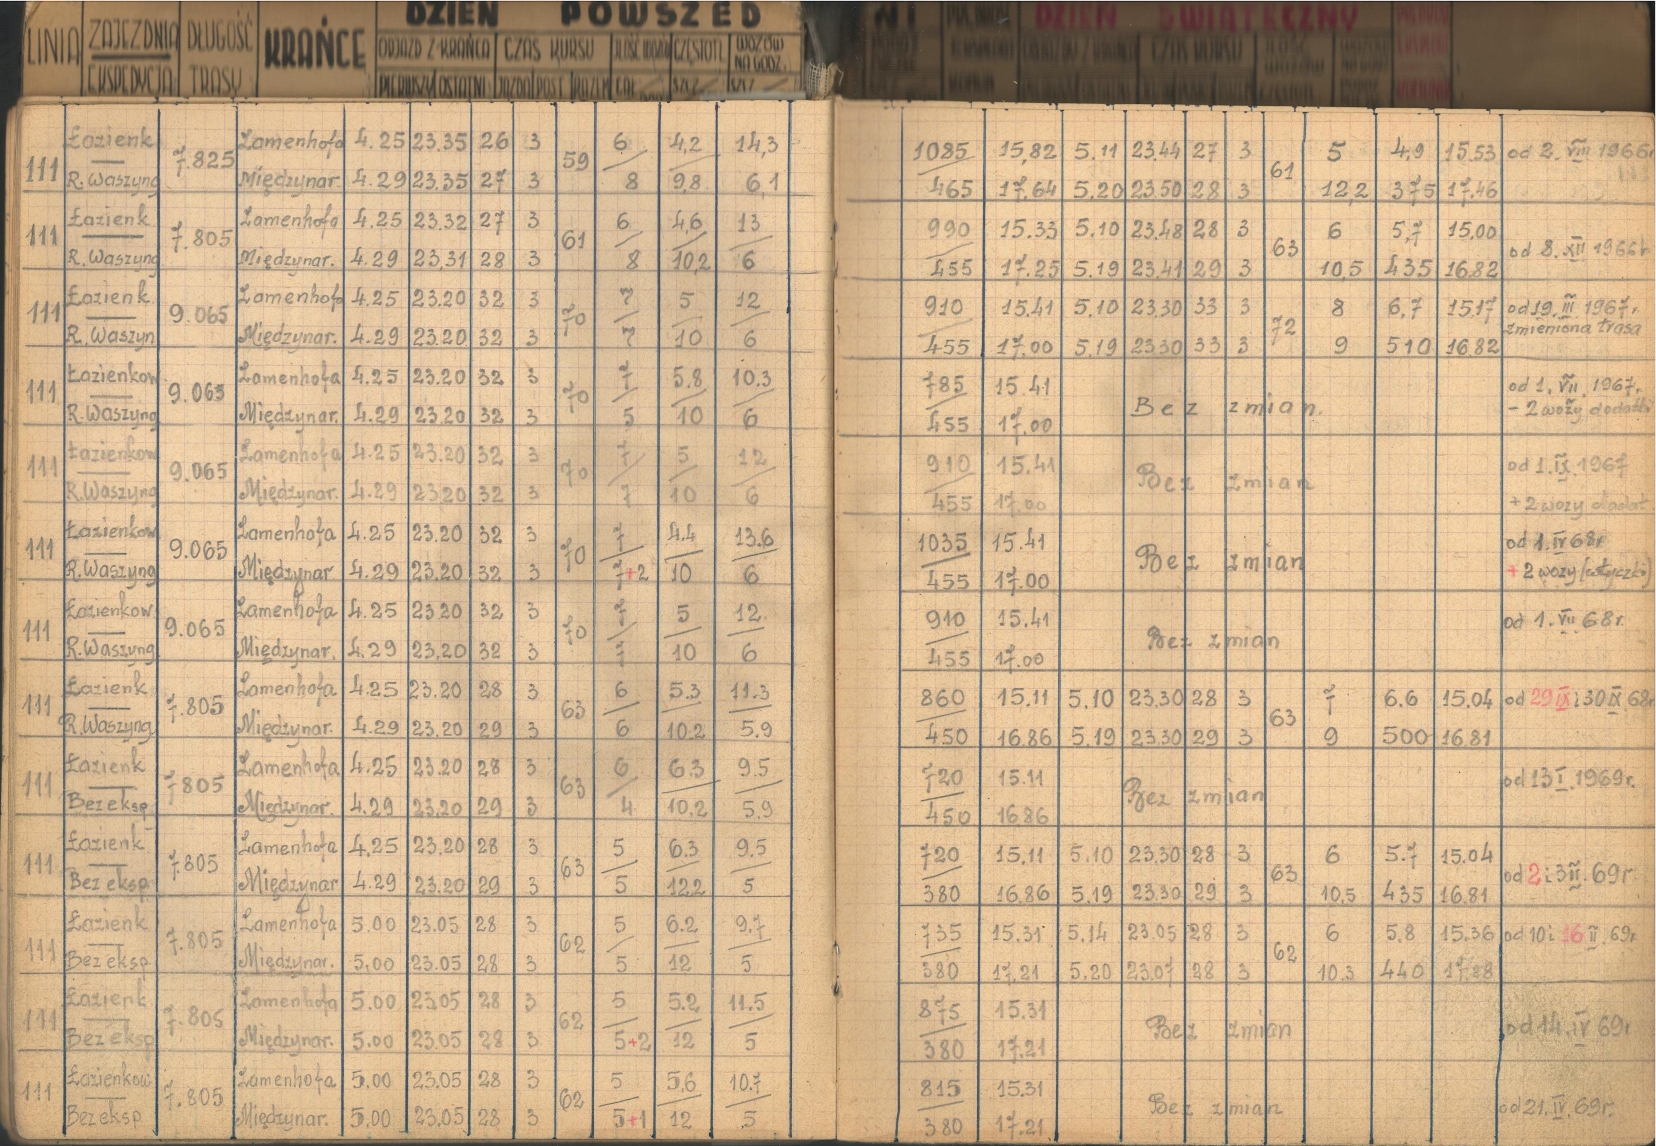 DZIEŃ POWSZED
LINIA ZAJEZDNIA DŁUGOŚĆ KRAŃCE ODJAZD Z KRAŃCA CZAS KURSU CZĘSTOTL. WOZÓW NA GODZ.
EKSPEDYCJA TRASY PIERWSZY OSTATNI JAZDA POST. RAZEM
DZIEŃ ŚWIĄTECZNY
Łazienk Zamenhofa 4.25 23.35 26 3 6 4,2 14,3 1085 15,82 5.11 23.44 27 3 5 4,9 15.53 od 2. VIII 1966r
111 7.825 59 61
R. Waszyng Międzynar. 4.29 23.35 27 3 8 9,8 6,1 465 17,64 5.20 23.50 28 3 12,2 375 17.46
Łazienk Zamenhofa 4.25 23.32 27 3 6 4,6 13 990 15.33 5.10 23.48 28 3 6 5,7 15,00
111 7.805 61 63 od 8. XII 1966r
R. Waszyng Międzynar. 4.29 23,31 28 3 8 10,2 6 455 17.25 5.19 23.41 29 3 10,5 435 16.82
Łazienk Zamenhofa 4.25 23.20 32 3 7 5 12 910 15.41 5.10 23.30 33 3 8 6,7 15.17 od 19. III 1967r.
111 9.065 70 72 zmieniona trasa
R. Waszyn Międzynar. 4.29 23.20 32 3 7 10 6 455 17.00 5.19 23.30 33 3 9 510 16.82
Łazienkow Zamenhofa 4.25 23.20 32 3 7 5.8 10.3 785 15.41 od 1. VII. 1967r.
111 9.065 70 Bez zmian. - 2 wozy dodatk
R. Waszyng Międzynar. 4.29 23.20 32 3 5 10 6 455 17.00
Łazienkow Zamenhofa 4.25 23.20 32 3 7 5 12 910 15.41 od 1. IX. 1967
111 9.065 70 Bez zmian
R. Waszyng Międzynar. 4.29 23.20 32 3 7 10 6 455 17.00 + 2 wozy dodat.
Łazienkow Zamenhofa 4.25 23.20 32 3 7 4.4 13.6 1035 15.41 od 1. IV 68r
111 9.065 70 Bez zmian
R. Waszyng Międzynar 4.29 23.20 32 3 7+2 10 6 455 17.00 + 2 wozy (wtyczki)
Łazienkow Zamenhofa 4.25 23.20 32 3 7 5 12. 910 15.41 od 1. VII 68r.
111 9.065 70 Bez zmian
R. Waszyng Międzynar. 4.29 23.20 32 3 7 10 6 455 17.00
Łazienk Zamenhofa 4.25 23.20 28 3 6 5.3 11.3 860 15.11 5.10 23.30 28 3 7 6.6 15.04 od 29 IX i 30 IX 68r
111 7.805 63 63
R. Waszyng Międzynar. 4.29 23.20 29 3 6 10.2 5.9 450 16.86 5.19 23.30 29 3 9 500 16.81
Łazienk Zamenhofa 4.25 23.20 28 3 6 6.3 9.5 720 15.11 od 13 I. 1969r.
111 7.805 63 Bez zmian
Bez eksp Międzynar. 4.29 23.20 29 3 4 10,2 5.9 450 16.86
Łazienk Zamenhofa 4.25 23.20 28 3 5 6.3 9.5 720 15.11 5.10 23.30 28 3 6 5.7 15.04
111 7.805 63 63 od 2 i 3 II. 69r.
Bez eksp Międzynar 4.29 23.20 29 3 5 12.2 5 380 16.86 5.19 23.30 29 3 10,5 435 16.81
Łazienk Zamenhofa 5.00 23.05 28 3 5 6.2 9.7 735 15.31 5.14 23.05 28 3 6 5,8 15.36 od 10 i 16 II. 69r.
111 7.805 62 62
Bez eksp Międzynar. 5.00 23.05 28 3 5 12 5 380 17.21 5.20 23.07 28 3 10.3 440 17.28
Łazienk Zamenhofa 5.00 23.05 28 3 5 5.2 11.5 875 15.31
111 7.805 62 Bez zmian od 14. IV 69r
Bez eksp Międzynar. 5.00 23.05 28 3 5+2 12 5 380 17.21
Łazienkow Zamenhofa 5.00 23.05 28 3 5 5,6 10.7 815 15.31
111 7.805 62 Bez zmian od 21. IV. 69r.
Bez eksp Międzynar. 5.00 23.05 28 3 5+1 12 5 380 17.21